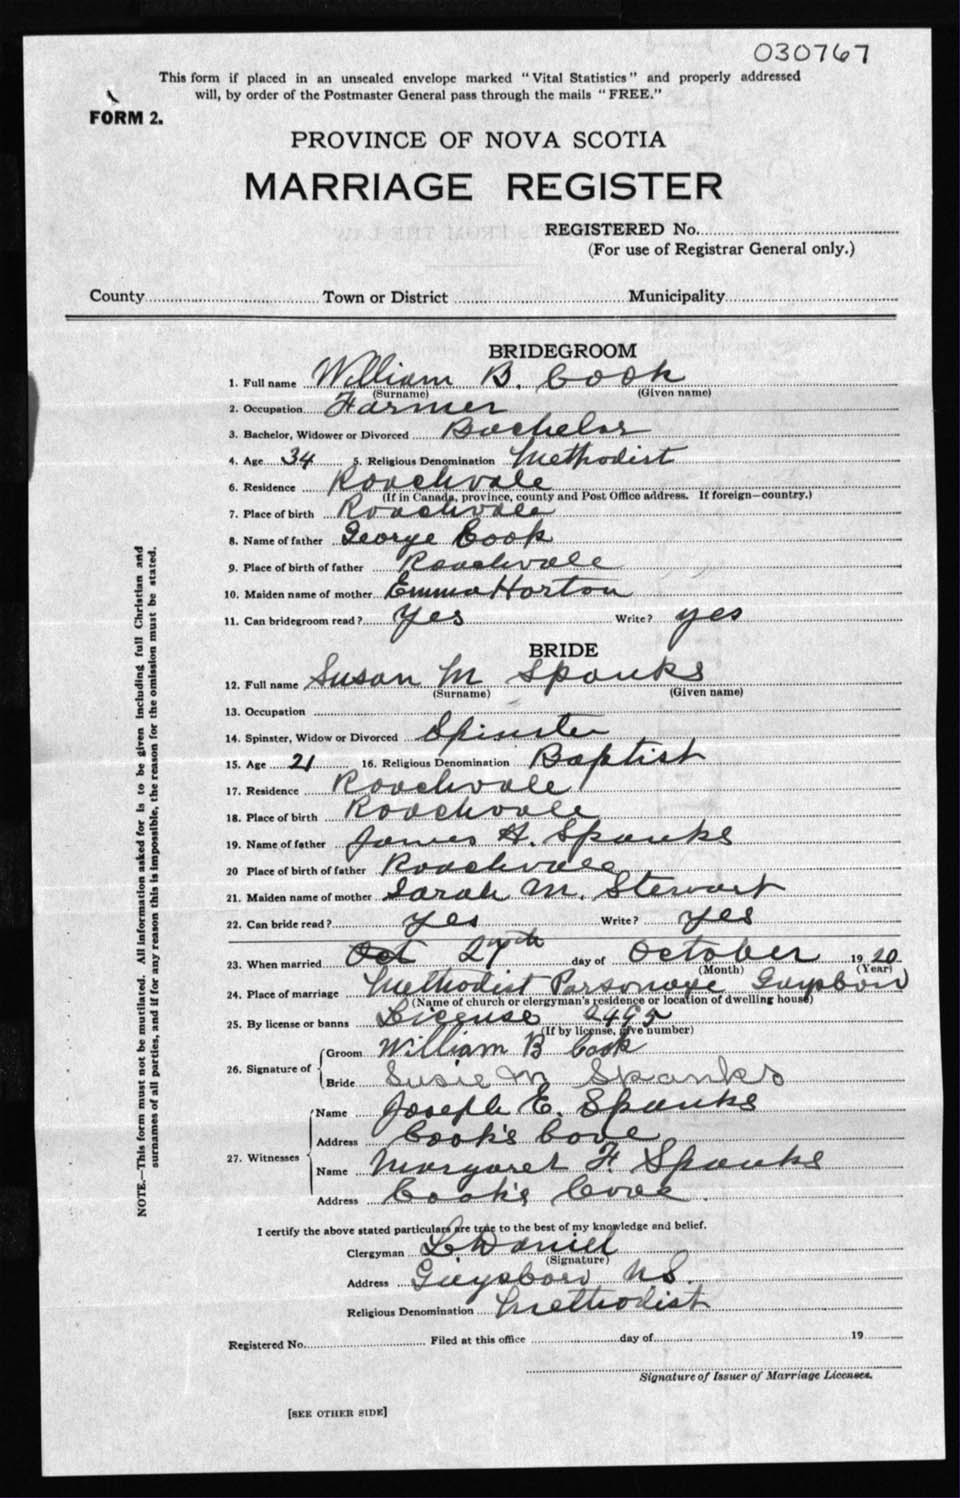 030767
This form if placed in an unsealed envelope marked "Vital Statistics" and properly addressed
will, by order of the Postmaster General pass through the mails "FREE."
FORM 2.
PROVINCE OF NOVA SCOTIA
MARRIAGE REGISTER
REGISTERED No.
(For use of Registrar General only.)
County Town or District Municipality
BRIDEGROOM
1. Full name William B. Cook
(Surname) (Given name)
2. Occupation Farmer
3. Bachelor, Widower or Divorced Bachelor
4. Age 34 5. Religious Denomination Methodist
6. Residence Roachvale
(If in Canada, province, county and Post Office address. If foreign—country.)
7. Place of birth Roachvale
8. Name of father George Cook
9. Place of birth of father Roachvale
10. Maiden name of mother Emma Horton
11. Can bridegroom read? Yes Write? yes
BRIDE
12. Full name Susan M Spanks
(Surname) (Given name)
13. Occupation
14. Spinster, Widow or Divorced Spinster
15. Age 21 16. Religious Denomination Baptist
17. Residence Roachvale
18. Place of birth Roachvale
19. Name of father James H. Spanks
20 Place of birth of father Roachvale
21. Maiden name of mother Sarah M. Stewart
22. Can bride read? yes Write? yes
23. When married Oct 27th day of October 1920
(Month) (Year)
24. Place of marriage Methodist Parsonage Guysboro
(Name of church or clergyman's residence or location of dwelling house)
25. By license or banns License 2495
(If by license, give number)
26. Signature of
Groom William B Cook
Bride Susie M Spanks
27. Witnesses
Name Joseph E. Spanks
Address Cook's Cove
Name Margaret F Spanks
Address Cook's Cove.
I certify the above stated particulars are true to the best of my knowledge and belief.
Clergyman L Daniel
(Signature)
Address Guysboro NS.
Religious Denomination Methodist
Registered No. Filed at this office day of 19
Signature of Issuer of Marriage Licenses.
[SEE OTHER SIDE]
NOTE.—This form must not be mutilated. All information asked for is to be given including full Christian and
surnames of all parties, and if for any reason this is impossible, the reason for the omission must be stated.